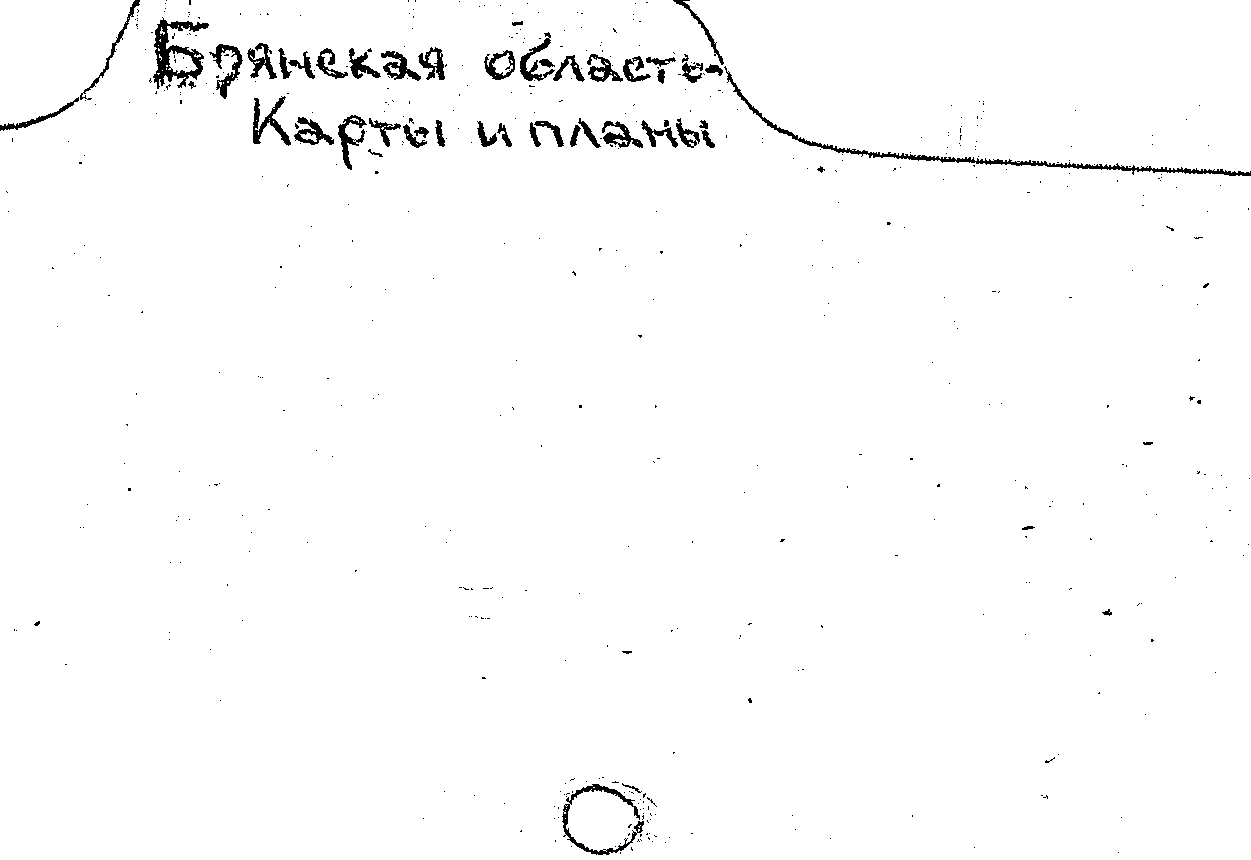 Брянская область-
Карты и планы